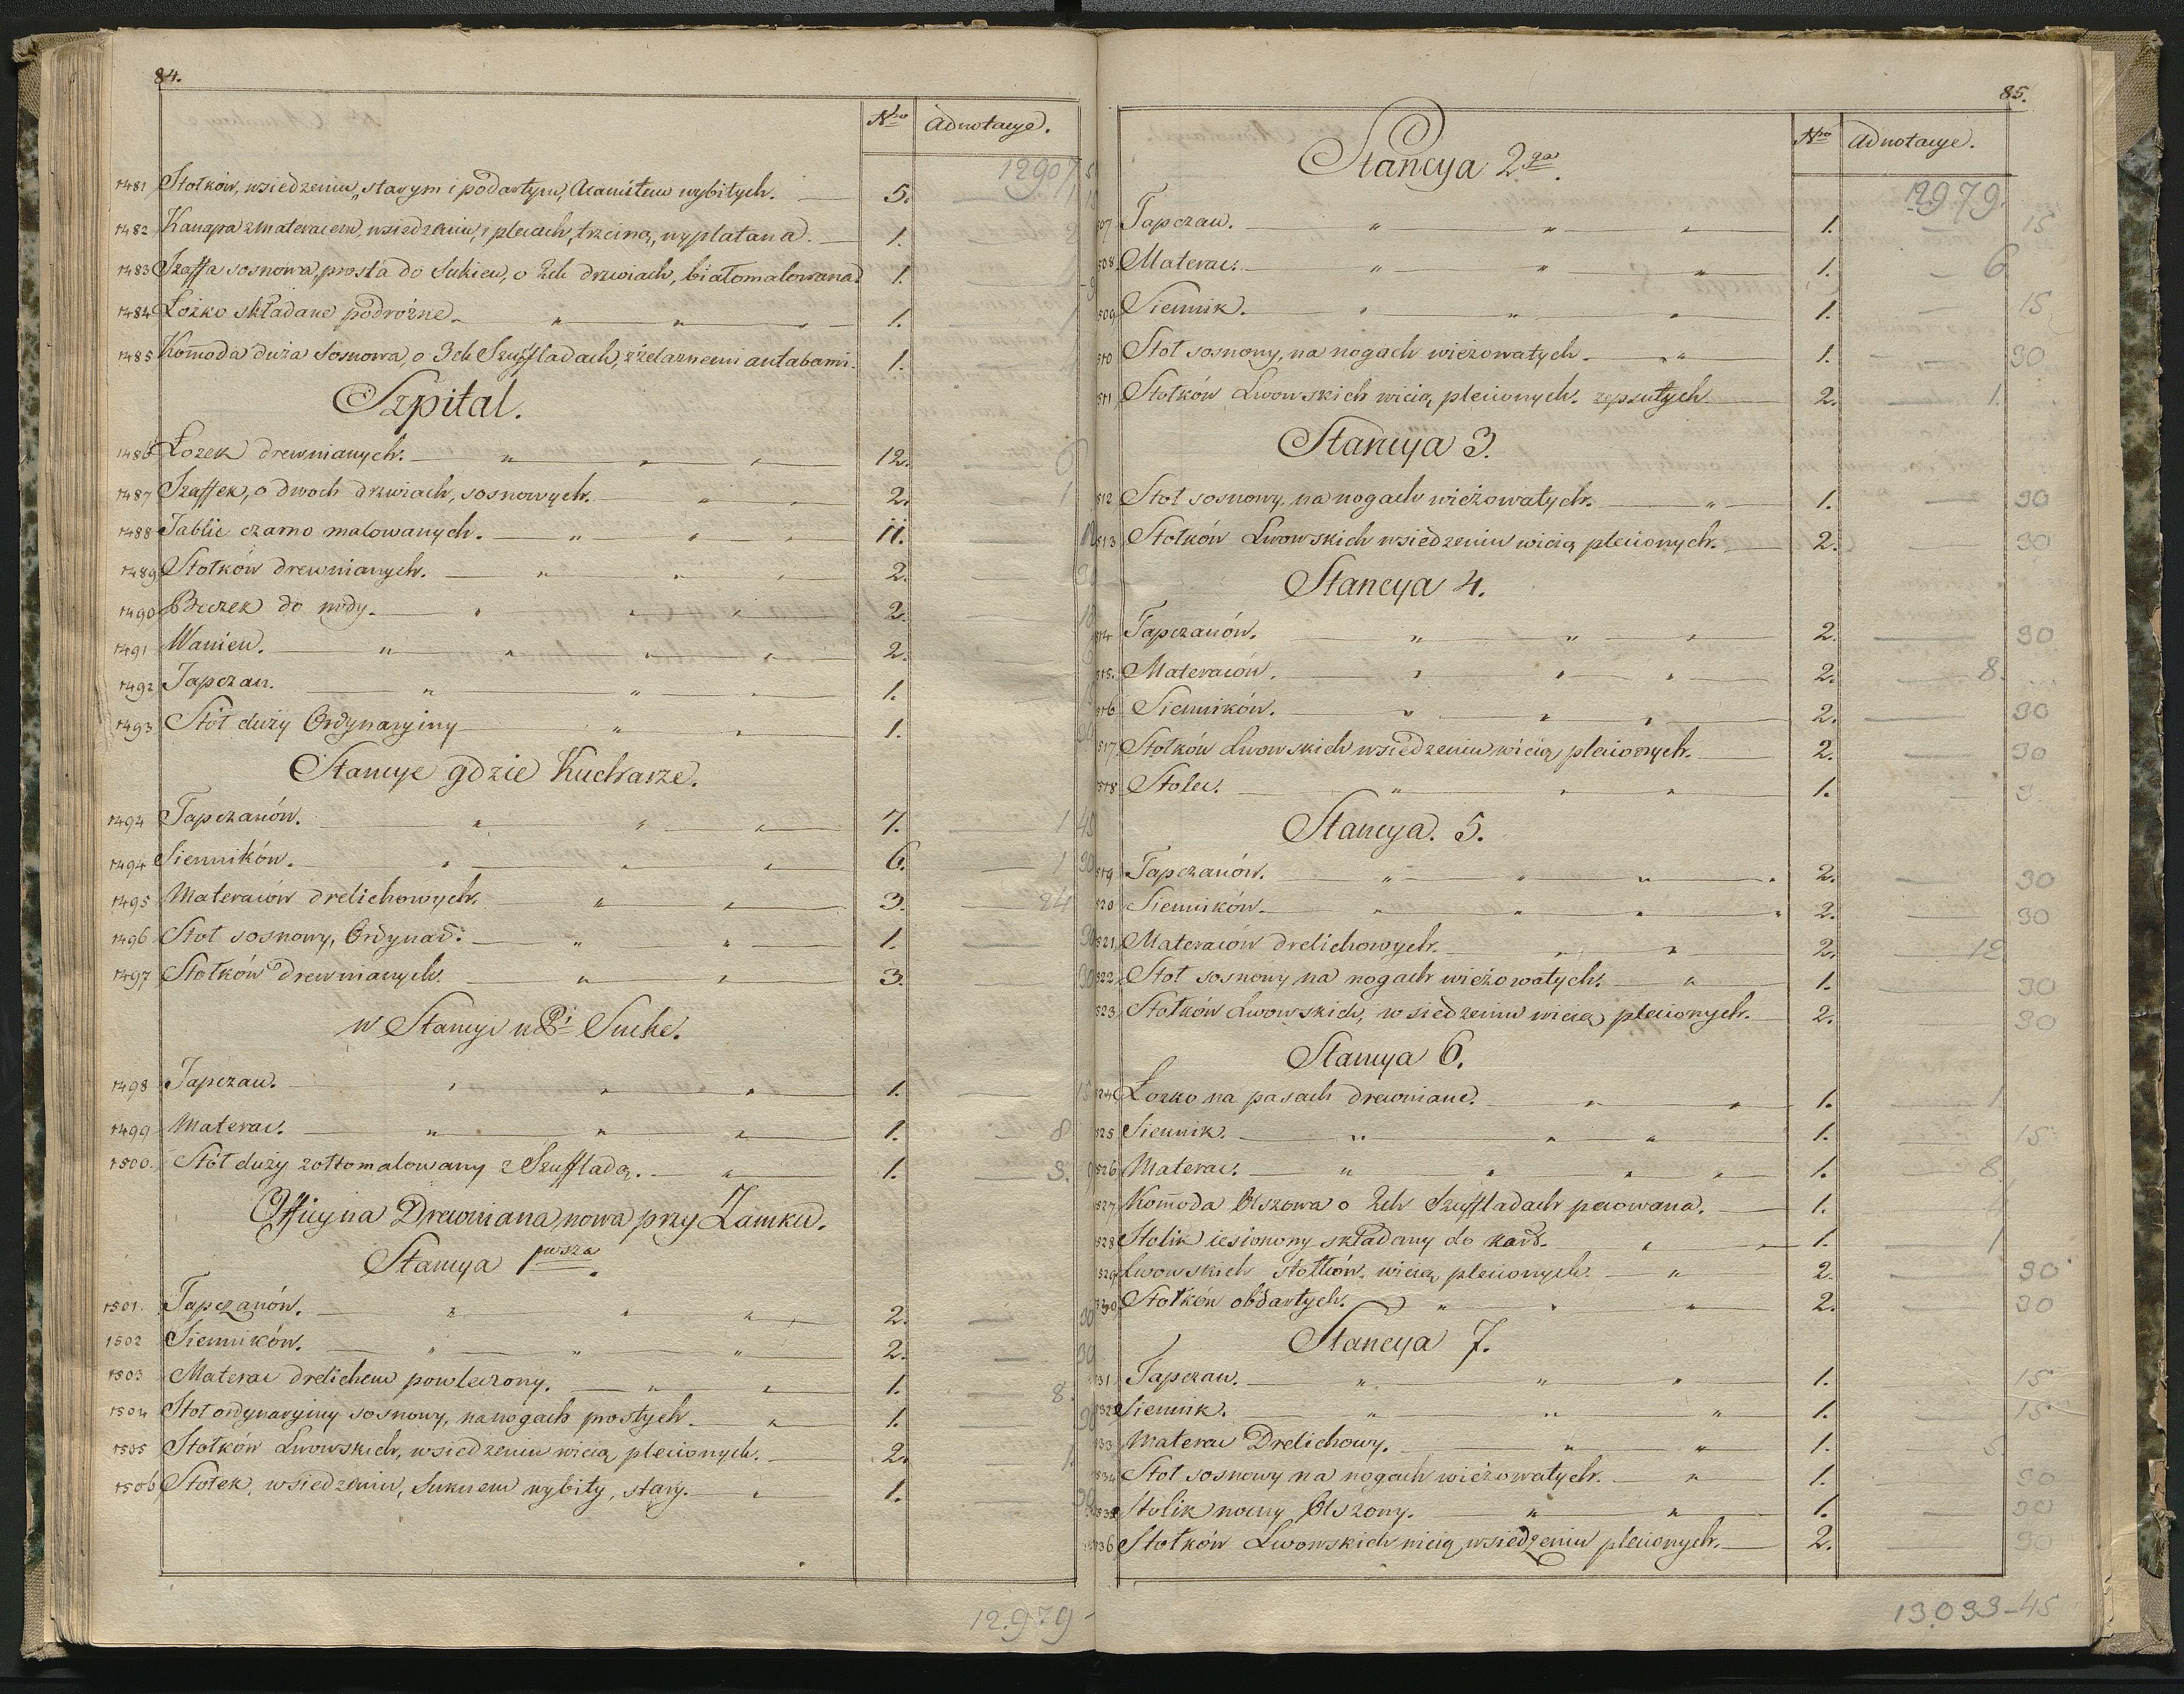 84.
Nro Adnotacye.
12907
1481 Stołków, w siedzeniu, starym i podartym, Axamitem wybitych. 5.
1482 Kanapa z Materacem, w siedzeniu, i plecach, trzciną, wyplatana. 1.
1483 Szaffa sosnowa, prosta do Sukien, o 2ch drzwiach, białomalowana. 1.
1484 Łożko składane podróżne. 1.
1485 Kom̄oda duża Sosnowa, o 3ch Szuffladach, z żelaznemi antabami. 1.
Szpital.
1486 Łozek drewnianych. 12. 6
1487 Szaffek, o dwoch drzwiach, sosnowych. 2. 1
1488 Tablic czarno malowanych. 11.
1489 Stołków drewnianych. 2.
1490 Beczek do wody. 2.
1491 Wanien. 2.
1492 Tapczan. 1.
1493 Stół duży Ordynaryiny 1.
Stancye gdzie Kucharze.
1494 Tapczanów. 7. 1 45
1494 Sienników. 6. 1 30
1495 Materaców drelichowych. 3. 24
1496 Stoł sosnowy, Ordynar: 1. 30
1497 Stołków drewnianych. 3. 30
w Stancyi u Pi Suche.
1498 Tapczan. 1. 15
1499 Materac. 1. 8
1500. Stół duży zołtomalowany z Szufladą. 1. 3.
Officyna Drewniana, nowa przy Zamku.
Stancya 1wsza.
1501. Tapczanów. 2. 30
1502 Sienników. 2. 30
1503 Materac drelichem powleczony. 1. 8.
1504 Stoł ordynaryiny sosnowy, na nogach prostych. 1. 30
1505 Stołków Lwowskich, w siedzeniu wicią plecionych. 2. 1.
1506 Stołek, w siedzeniu, Suknem wybity, stary. 1.
12.979 -
85.
Stancya 2ga.
Nro Adnotacye.
12979.
507 Tapczan. 1. 15
508 Materac. 1. 6
509 Siennik. 1. 15
510 Stoł sosnowy, na nogach wieżowatych. 1. 30
511 Stołków Lwowskich wicią plecionych. zepsutych. 2. 1.
Stancya 3.
512 Stoł sosnowy, na nogach wieżowatych. 1. 30
513 Stołków Lwowskich w siedzeniu wicią plecionych. 2. 30
Stancya 4.
514 Tapczanów. 2. 30
515. Materaców. 2. 8.
516 Sienników. 2. 30
517 Stołków Lwowskich w siedzeniu, wicią plecionych. 2. 30
518 Stolec. 1. 3
Stancya. 5.
519 Tapczanów. 2. 30
520 Sienników. 2. 30
521 Materaców drelichowych. 2. 12
522 Stoł sosnowy na nogach wieżowatych. 1. 30
523 Stołków Lwowskich, w siedzeniu wicią plecionych. 2. 30
Stancya 6.
524 Łozko na pasach drewniane. 1. 1
525 Siennik. 1. 15
526 Materac. 1. 8
527 Kom̄oda Olszowa o 2ch Szuffladach 1. 4
528 Stolik iesionowy składany do kart. 1. 1
529 Lwowskich stołków, wicią plecionych. 2. 30
530 Stołków obdartych. 2. 30
Stancya 7.
531 Tapczan. 1. 15
532 Siennik. 1. 15
533 Materac Drelichowy. 1. 5
534 Stoł sosnowy na nogach wieżowatych. 1. 30
535 Stolik nowy Olszowy. 1. 30
536 Stołków Lwowskich wicią w siedzeniu plecionych. 2. 30
13033-45